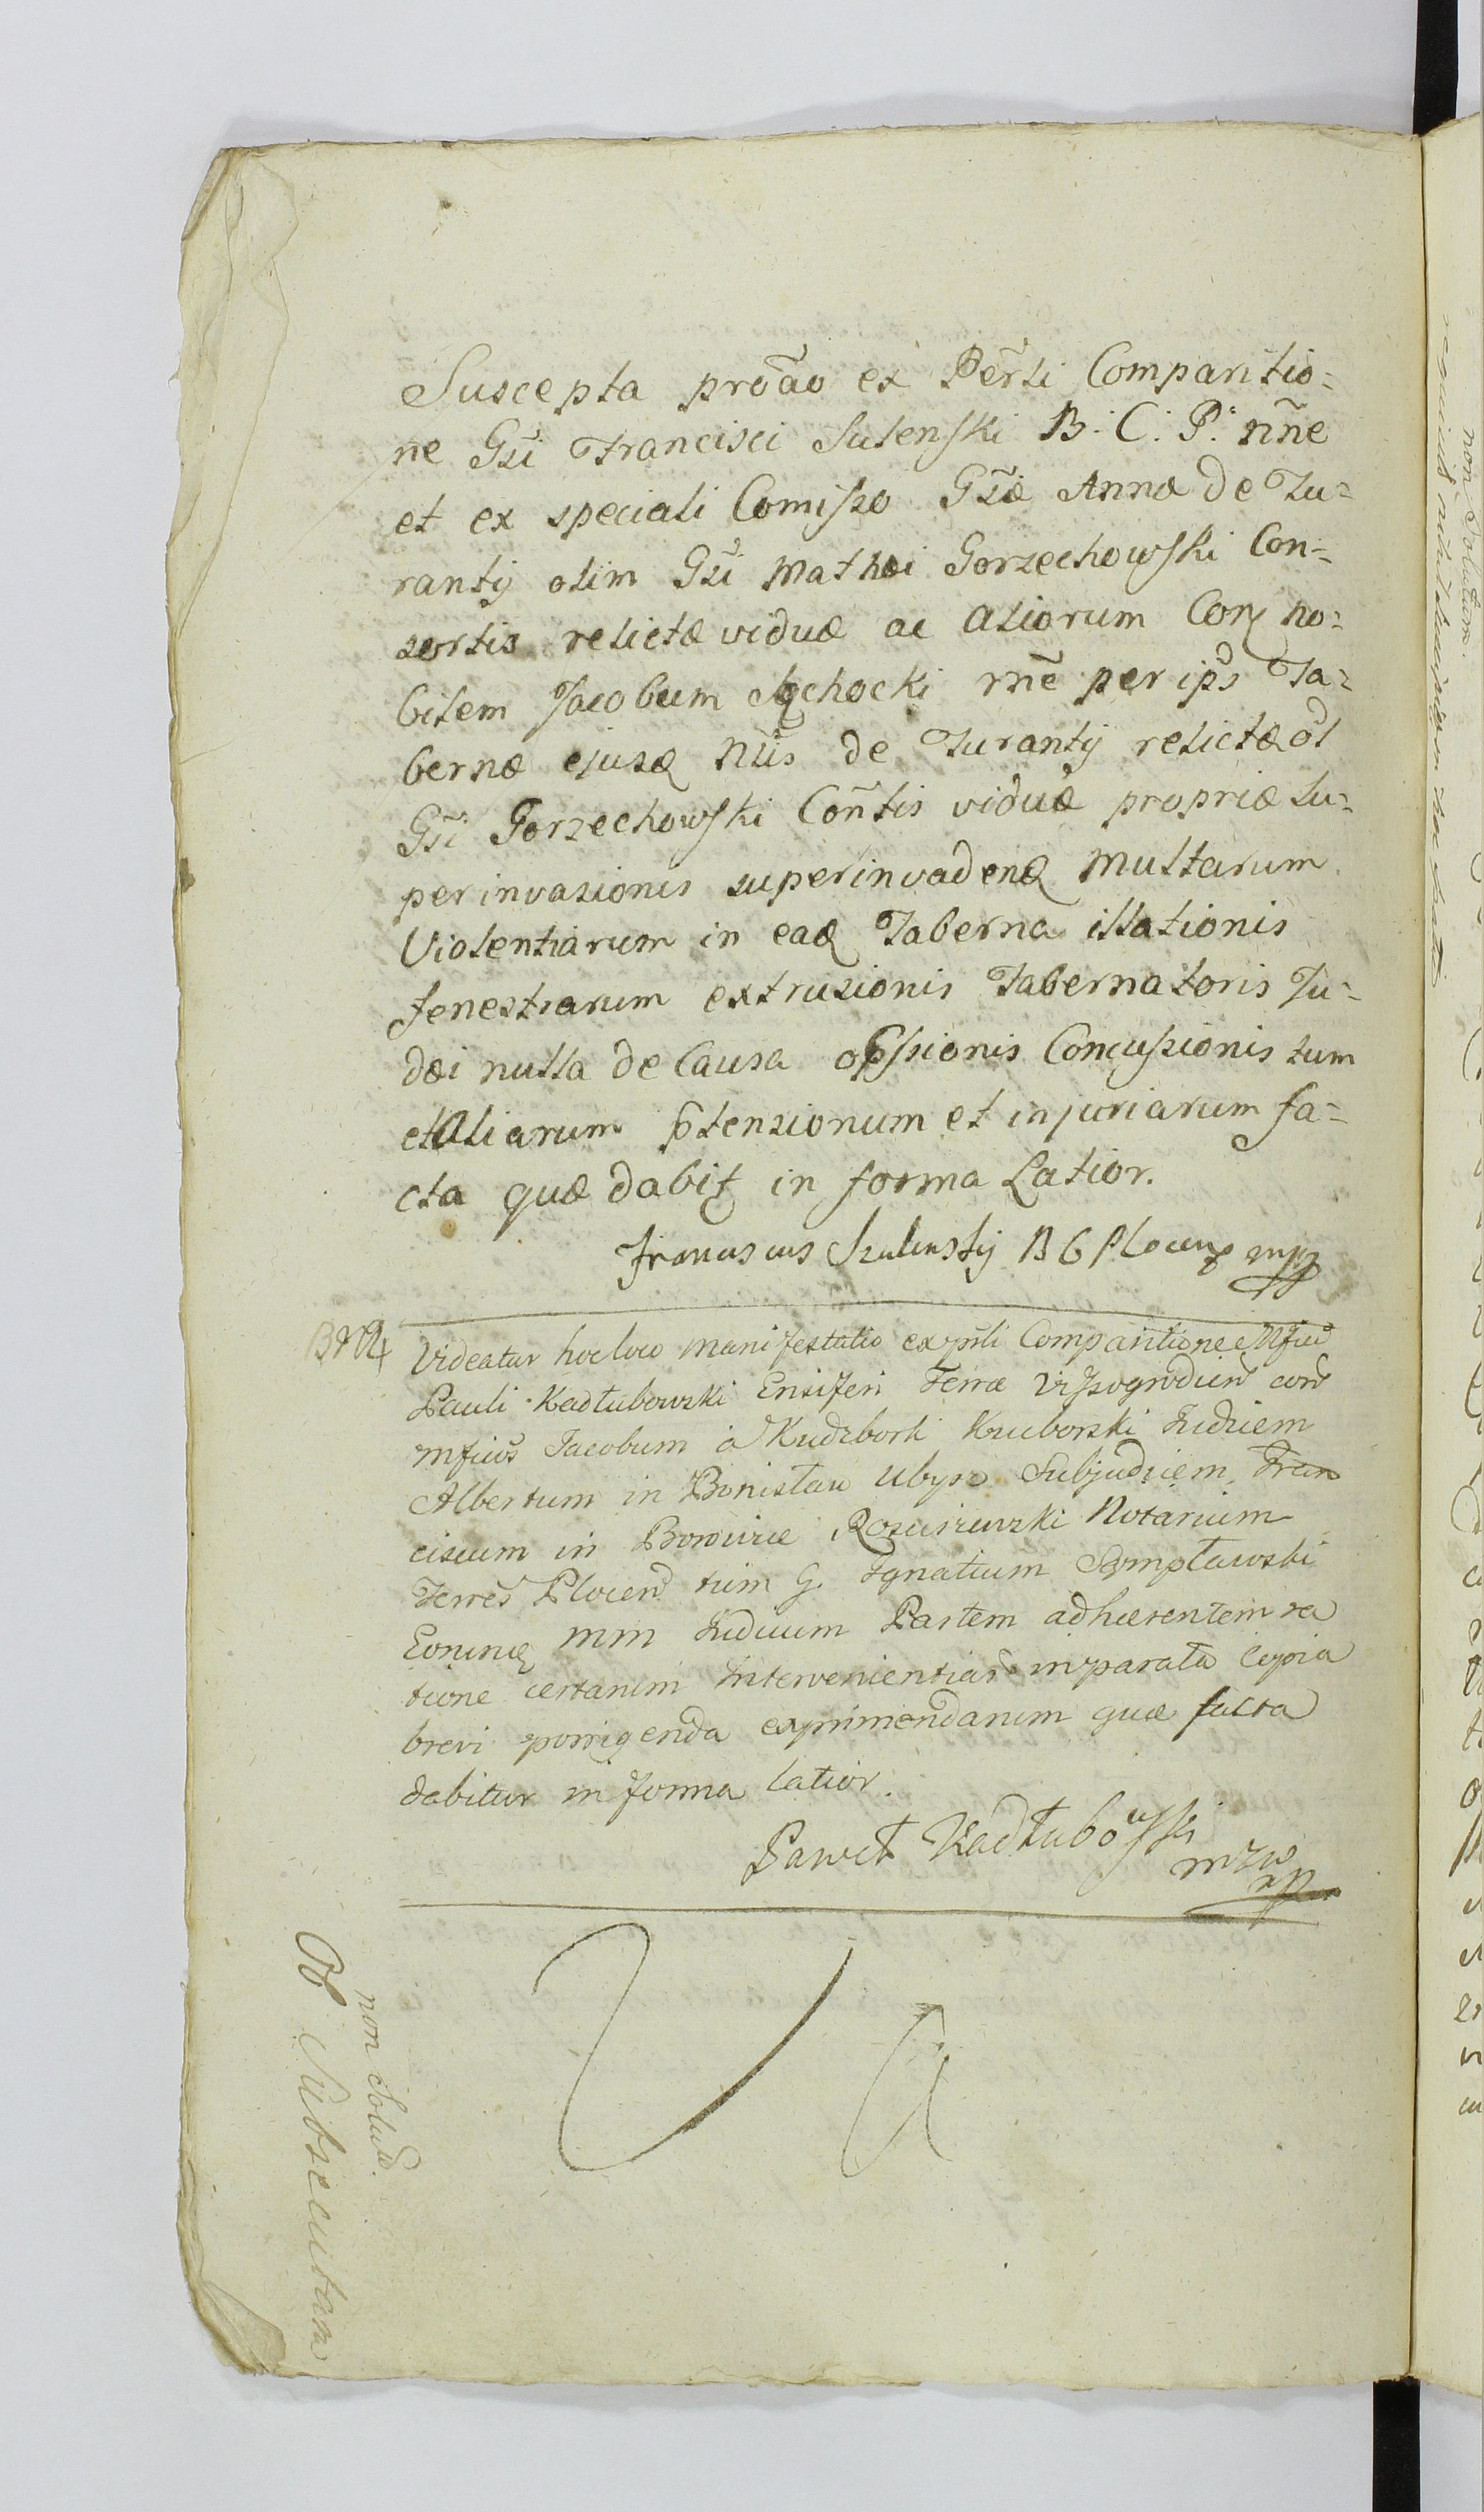 Suscepta prõao ex Pẽrti Comparitio=
ne Gsĩ Francisci Sulenski B: C: P: nñe
et ex speciali Comisso Gsæ̃ Annæ de Tu=
ranty olim Gsĩ Mathæi Gorzechowski Con=
sortis relictæ viduæ ac Aliorum Conz no=
bilem Jacobum Sochocki rñe per ips Ta=
bernæ ejusq Ntis de Turanty relictæ ol
Gsĩ Gorzechowski Coñtis viduæ propriæ su=
perinvasionis superinvadenq Multarum
Violentiarum in eaq Taberna illationis
fenestrarum extrusionis Tabernatoris Ju=
dæi nulla de Causa opssionis Concussionis tum
et Aliarum ptensionum et injuriarum fa=
cta quæ dabit in forma Latior.
Franciscus Szulenskij B C Plocens mp
Videatur hocloco Manifestatio ex pñti Comparitione Mfici
Pauli Kadłubowski Ensiferi Terræ Vissogrodien con
mficos Jacobum à Kudzbork Kruborski Judicem
Albertum in Bonisław Ubysz Subjudicem, Fran
ciscum in Rosciszewski Notarium
Terres Plocen tum G. Ignatium Sempławski
Eorunq MM Judicum Partem adhærentem ra
tione certarum Intervenientiar in parata Copia
brevi porrigenda exprimendarum quæ facta
dabitur in forma latior.
Paweł Kadłubowski
mzw
mp
non Solut.
Ob Subsecutam
non Solutum.